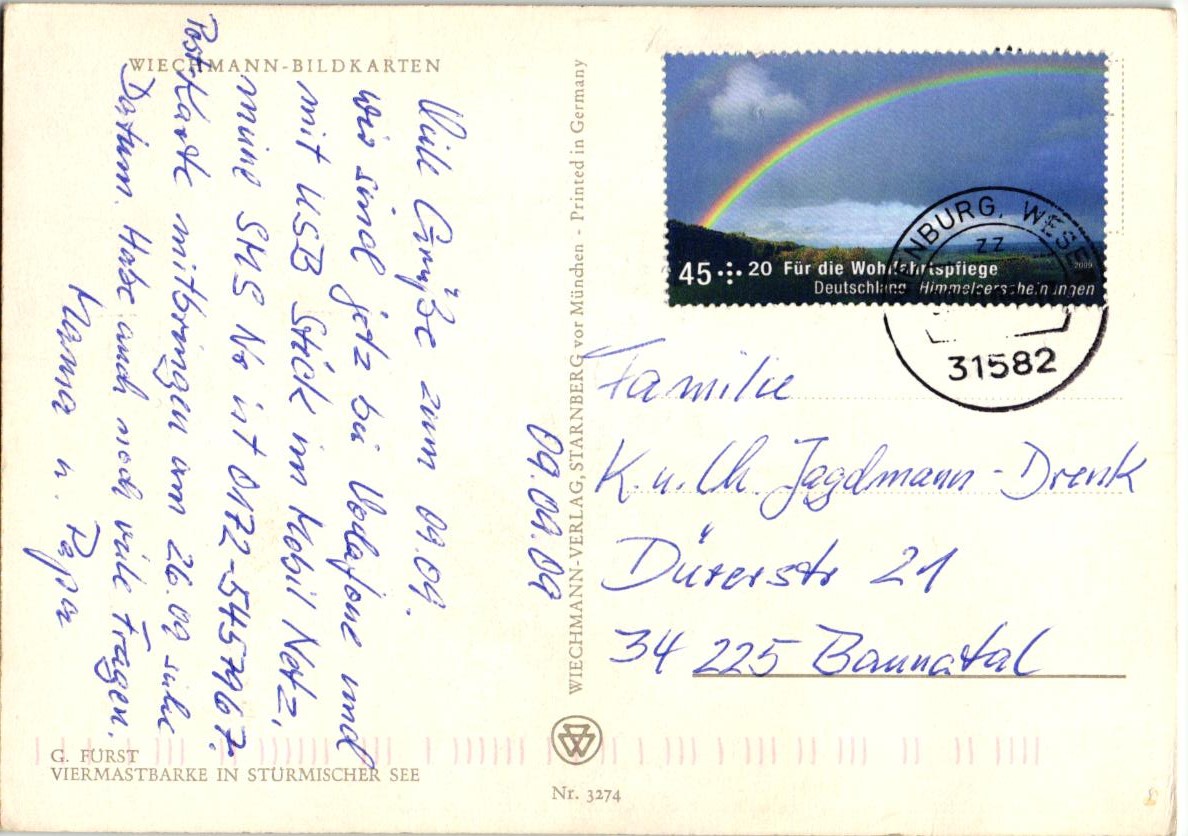 WIECHMANN-BILDKARTEN
Viele Grüße zum 09.09.
wir sind jetz bei Vodafone und
mit USB Stick im Mobil Netz,
meine SMS No ist 0172-5457967.
Postkarte mitbringen am 26.09 siehe
Datum. Habe auch noch viele Fragen.
Mama u. Papa
09.09.09
WIECHMANN-VERLAG, STARNBERG vor München - Printed in Germany
45 + 20 Für die Wohlfahrtspflege
2009
Deutschland Himmelserscheinungen
ENBURG, WESE
ZZ
31582
Familie
K. u. Ch. Jagdmann-Drenk
Dürerstr 21
34 225 Baunatal
G. FÜRST
VIERMASTBARKE IN STÜRMISCHER SEE
Nr. 3274